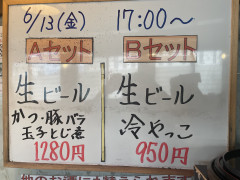 6/13(金) 17:00〜
Aセット
生ビール
かつ・豚バラ
玉子とじ煮
1280円
Bセット
生ビール
冷やっこ
950円